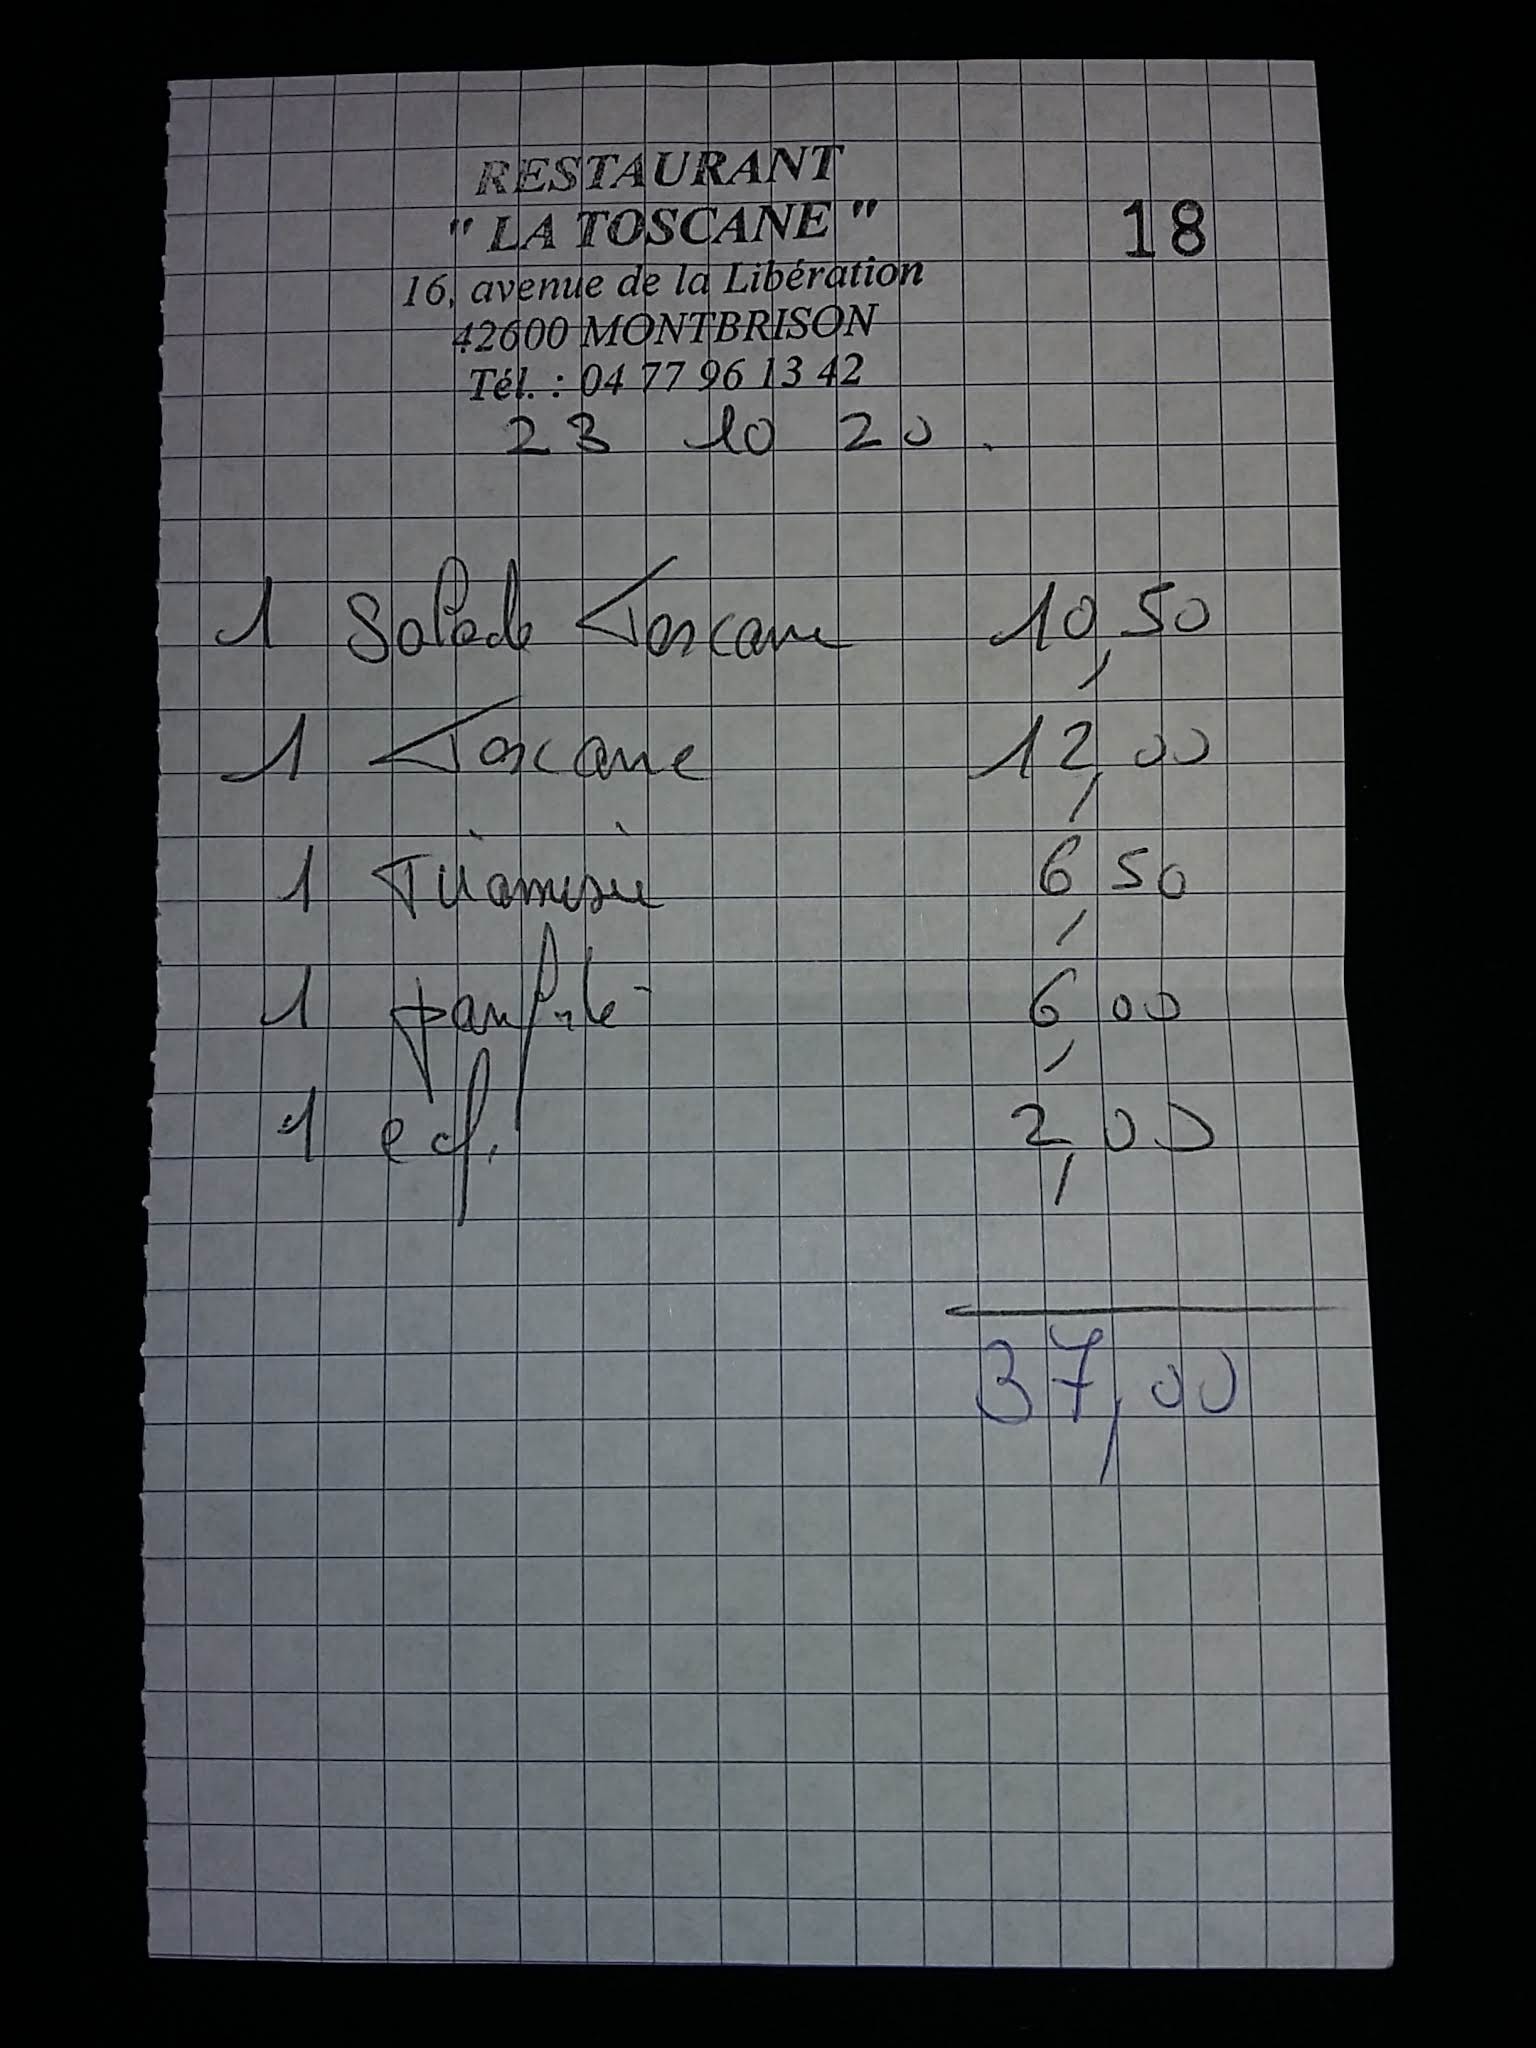 RESTAURANT
" LA TOSCANE "
18
16, avenue de la Libération
42600 MONTBRISON
Tél. : 04 77 96 13 42
23 10 20.
1 Salade Toscane 10,50
1 Toscane 12,00
1 Tiramisu 6,50
1 6,00
1 2,00
37,00